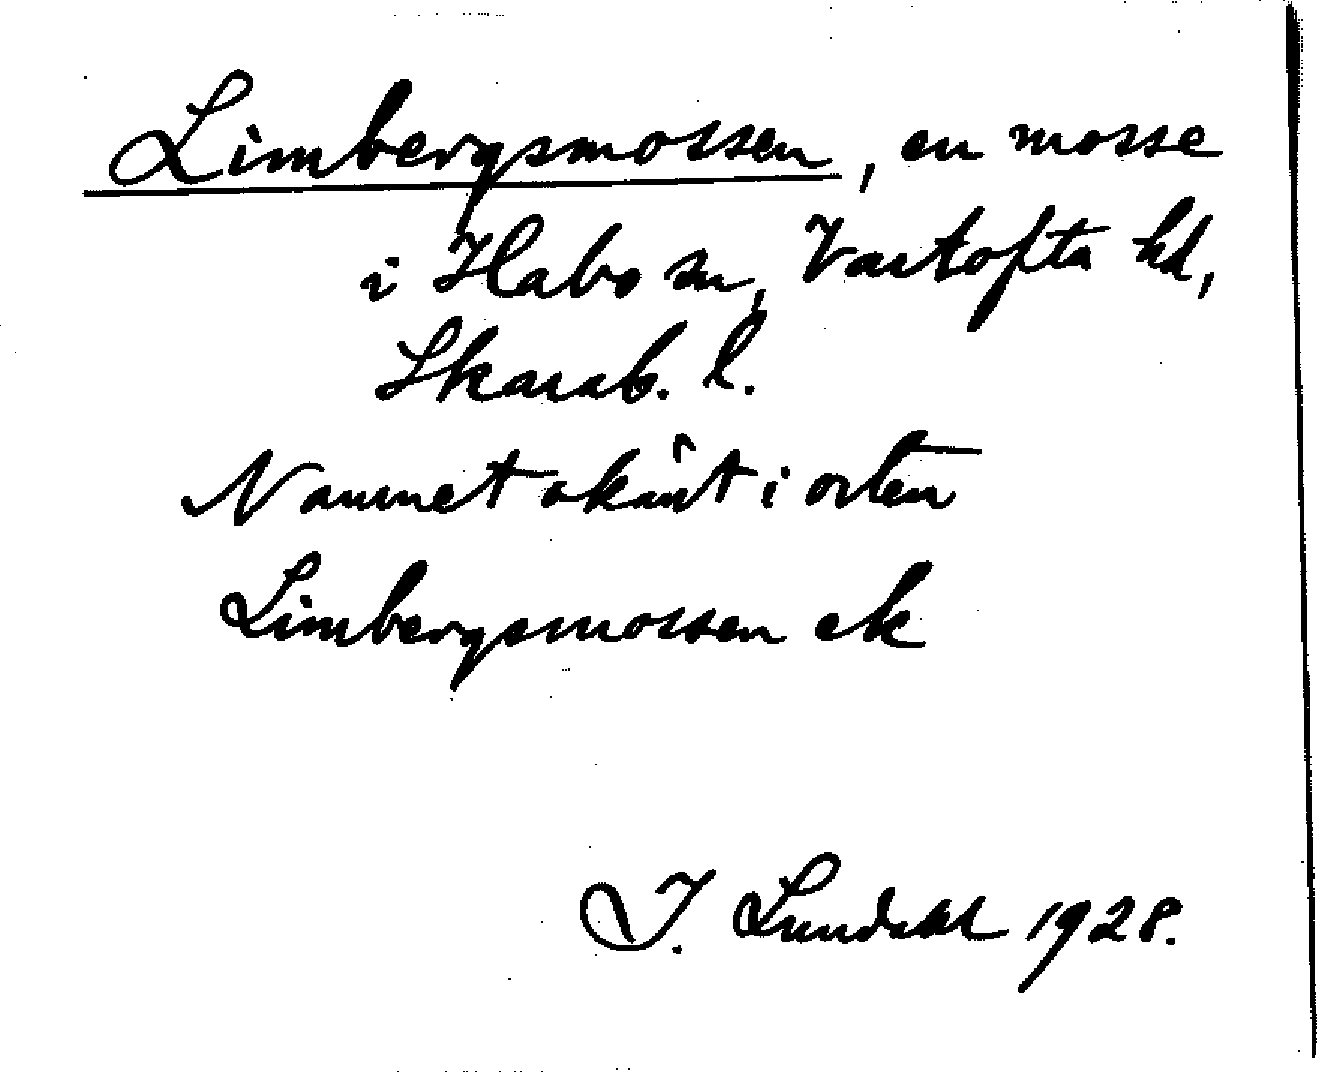 Limbergsmossen, en mosse
i Habo sn, Vartofta hd,
Skarab. l.
Namnet okänt i orten
Limbergsmossen ek
I. Lundahl 1928.